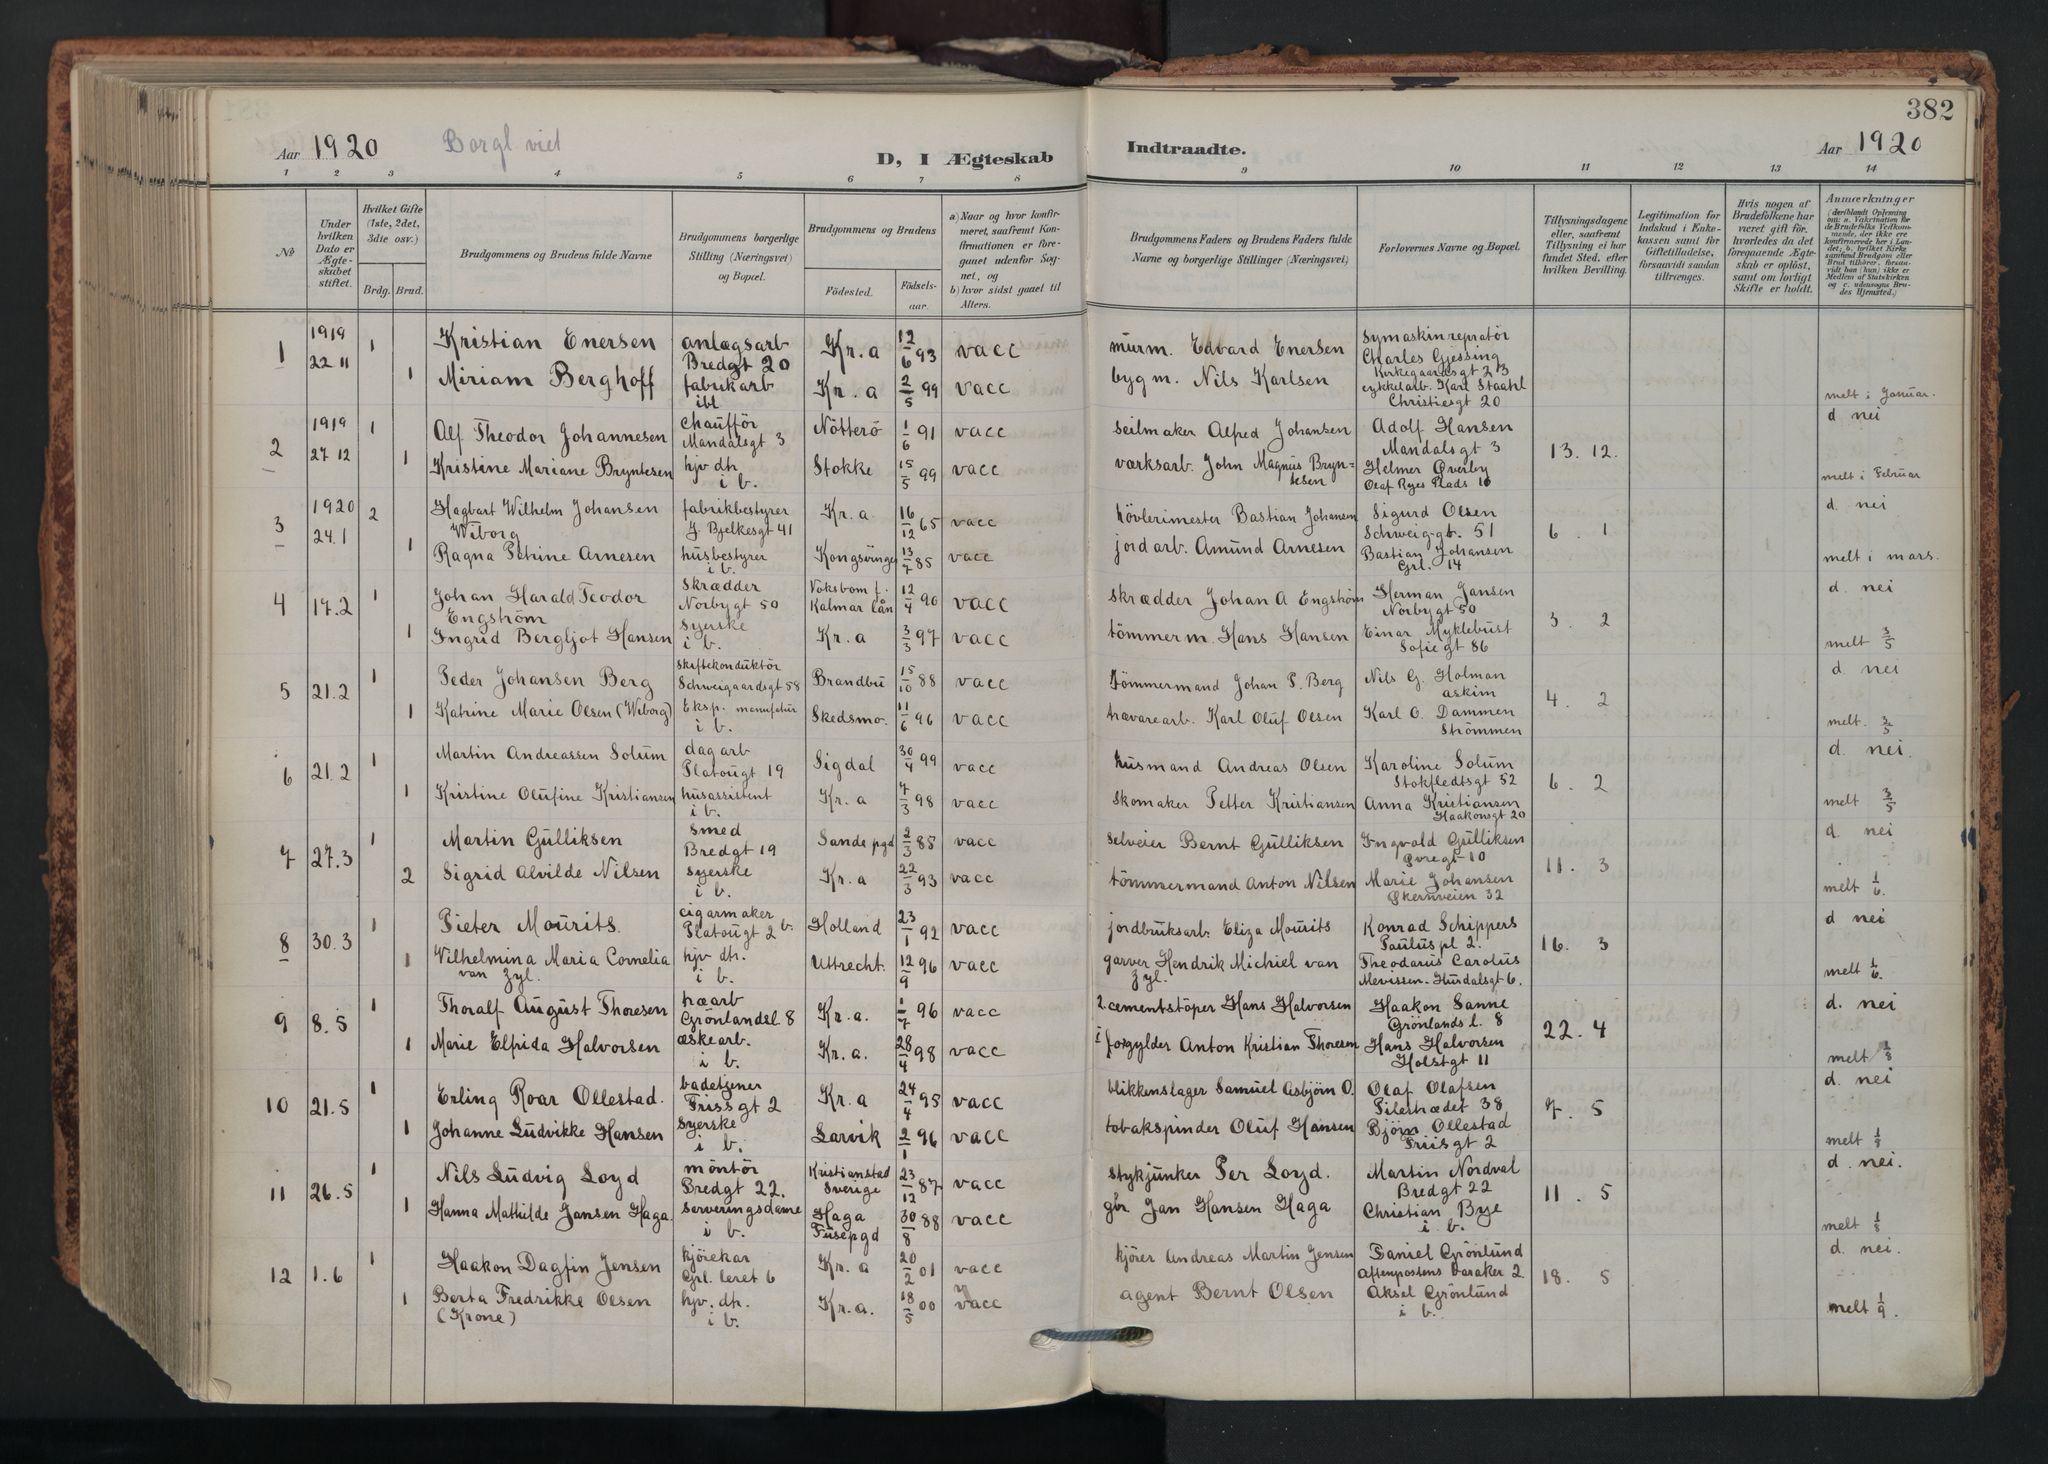 382
Aar 1920 Borgl viet D, I Ægteskab Indtraadte. Aar 1920
1 2 3 4 5 6 7 8 9 10 11 12 13 14
No
Under hvilken Dato er Ægteskabet stiftet.
Hvilket Gifte (1ste, 2det, 3die osv.)
Brdg. Brud.
Brudgommens og Brudens fulde Navne
Brudgommens borgerlige Stilling (Næringsvei) og Bopæl.
Brudgommens og Brudens
Fødested. Fødselsaar.
a) Naar og hvor konfirmeret, saafremt Konfirmationen er foregaaet udenfor Sognet, og
b) hvor sidst gaaet til Alters.
Brudgommens Faders og Brudens Faders fulde Navne og borgerlige Stillinger (Næringsvei)
Forlovernes Navne og Bopæl.
Tillysningsdagene eller, saafremt Tillysning ei har fundet Sted, efter hvilken Bevilling.
Legitimation for Indskud i Enkekassen samt for Giftetilladelse, forsaavidt saadan tiltrænges.
Hvis nogen af Brudefolkene har været gift før, hvorledes da det foregaaende Ægteskab er opløst, samt om lovligt Skifte er holdt.
Anmærkninger
(deriblandt Oplysning om: a. Vakcination for de Brudefolks Vedkommende, der ikke ere konfirmerede her i Landet; b. hvilket Kirkesamfund Brudgom eller Brud tilhører, forsaavidt han (hun) ikke er Medlem af Statskirken og c. udensogns Brudes Hjemsted.)
1 1919 22 11 1 Kristian Enersen anlægsarb Bredgt 20 Kr.a 12/6 93 vacc murm. Edvard Enersen Symaskinrepratør Charles Gjessing Kirkegaardsgt 23
1 Miriam Berghoff fabrikarb ibl Kr.a 2/5 99 vacc bygm. Nils Karlsen cykkelarb. Karl Staahl Christiesgt 20 melt i Januar.
2 1919 27 12 1 Alf Theodor Johannesen Chaufför Mandalsgt 3 Nötterö 1/6 91 vacc seilmaker Alfred Johansen Adolf Hansen Mandalsgt 3 13. 12. d. nei
1 Kristine Mariane Bryntesen hjv dtr i b. Stokke 15/5 99 vacc værksarb. John Magnus Bryntesen Helmer Överby Olaf Ryes Plads 10 melt i Februar
3 1920 24.1 2 Hagbart Wilhelm Johansen Wiborg fabrikbestyrer J. Bjelkesgt 41 Kr.a 16/12 65 vacc hövlerimester Bastian Johansen Sigurd Olsen Schweig-gt. 51 6. 1 d. nei
1 Ragna Petrine Arnesen husbestyrer i b. Kongsvinger 13/7 85 vacc jordarb. Amund Arnesen Bastian Johansen Grl. 14 melt i mars.
4 17.2 1 Johan Harald Teodor Engström skrædder Norbygt 50 Voksbom f. Kalmar Län 12/4 90 vacc skrædder Johan A Engström Herman Jansen Norbygt 50 3. 2 d. nei
1 Ingrid Bergljot Hansen syerske i b. Kr.a 3/3 97 vacc tömmerm. Hans Hansen Einar Myklebust Sofiegt 86 melt 3/5
5 21.2 1 Peder Johansen Berg Skiftekonduktör Schweigaardsgt 58 Brandbu 15/10 88 vacc tömmermand Johan P. Berg Nils G. Holman askim 4. 2 d. nei
1 Katrine Marie Olsen (Wiborg) Eksp. manufetur i b. Skedsmo. 11/6 96 vacc trævarearb. Karl Oluf Olsen Karl O. Dammen Strömmen melt. 3/5
6 21.2 1 Martin Andreassen Solum dagarb Platougt 19 Sigdal 30/4 99 vacc husmand Andreas Olsen Karoline Solum Stokfledtsgt 52 6. 2 d. nei.
1 Kristine Olufine Kristiansen husassistent i b. Kr.a 7/3 98 vacc skomaker Petter Kristiansen Anna Kristiansen Haakonsgt 20 melt 3/5
7 27.3 1 Martin Gulliksen smed Bredgt 19 Sande pgd 2/3 85 vacc selveier Bernt Gulliksen Ingvold Gulliksen Övregt 10 11. 3 d. nei
2 Sigrid Alvilde Nilsen syerske i b. Kr.a 22/3 93 vacc tömmermand Anton Nilsen Marie Johansen Økernveien 32 melt 1/6.
8 30.3 1 Pieter Mourits. cigarmaker Platougt 2 b. Holland 23/1 92 vacc jordbruksarb. Eliza Mourits Konrad Schippers Pauluspl 2. 16. 3 d nei
1 Wilhelmina Maria Cornelia van Zyl. hjv dtr. i b. Uttrecht. 12/9 96 vacc garver Hendrik Michiel van Zyl. Theodarus Carolus Mevissen- Hurdalsgt 6. melt 1/6.
9 8.5 1 Thoralf August Thoresen træarb Grönlandsl. 8 Kr.a. 1/7 96 vacc 2. cementstöper Hans Halvorsen Haakon Sanne Grönlands l. 8 22. 4 d. nei
1 Marie Elfrida Halvorsen æskearb. i b. Kr.a. 28/4 98 vacc 1 forgylder Anton Kristian Thoresen Hans Halvorsen Holstgt 11 melt 1/8
10 21.5 1 Erling Roar Ollestad. badetjener Friisgt 2 Kr.a 24/4 95 vacc blikkenslager Samuel Asbjörn O. Olaf Olafsen Pilestrædet 38 7. 5 d. nei
1 Johanne Ludvikke Hansen syerske i b. Larvik 2/1 96 vacc tobakspinder Oluf Hansen Björn Ollestad Friisgt 2 melt 1/8
11 26.5 1 Nils Ludvig Loyd möntör Bredgt 22. Kristianstad Sverige 23/12 87 vacc stykjunker Per Loyd. Martin Nordval Bredgt 22 11. 5 d. nei.
1 Hanna Mathilde Jansen Haga. serveringsdame i b. Haga Fusepgd 30/8 88 vacc gbr Jan Hansen Haga Christian Bye i b. melt 1/8
12 1.6 1 Haakon Dagfin Jensen kjörekar Grl. leret 6 Kr.a 20/2 01 vacc kjörer Andreas Martin Jensen Daniel Grönlund Aftenpostens baraker 2. 18. 5 d. nei.
1 Berta Fredrikke Olsen (Krone) hjv. dtr. i b. Kr.a. 18/5 00 vacc agent Bernt Olsen Aksel Grönlund i b. melt 1/9.